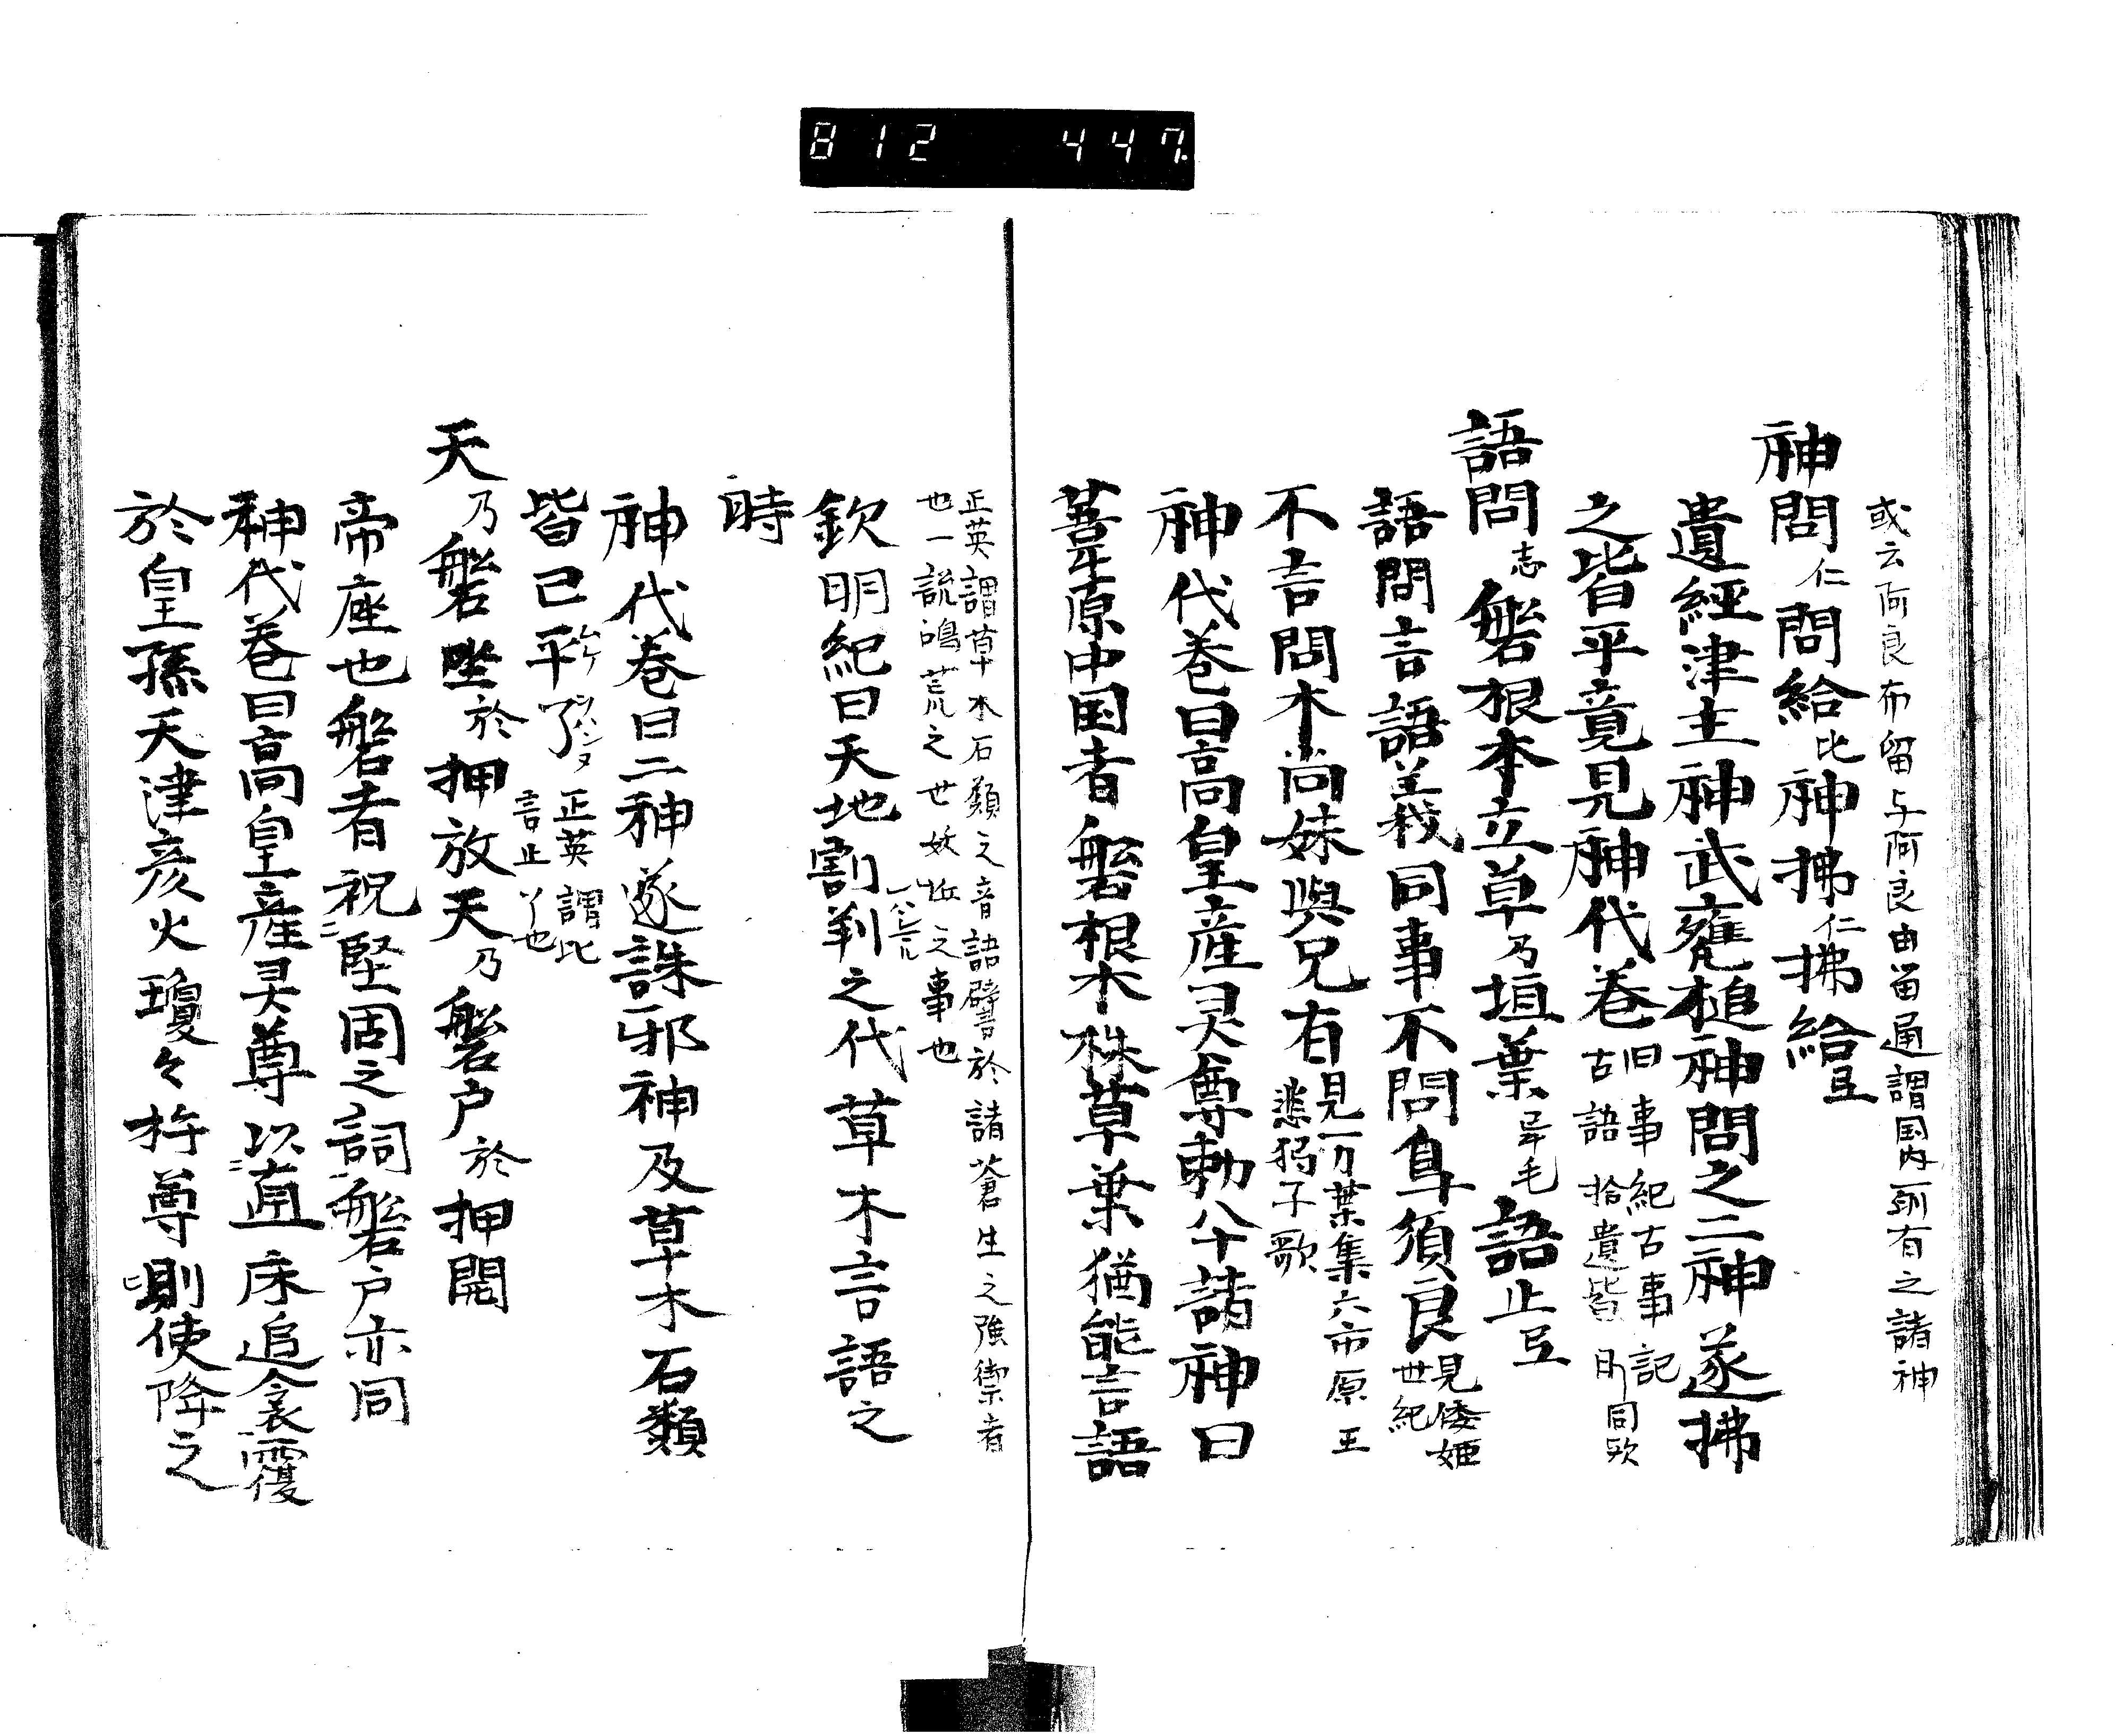 812 447
或云阿良布留与阿良由留通謂国内所有之諸神
神問仁問給比神拂仁拂給亘
遣經津主神武甕槌神問之二神遂拂
之皆平竟見神代巻旧事紀古事記
古語拾遺皆同歟
語問志磐根本立草乃垣葉毛語止亘
語問言語義同事不問阜須良見倭姫
世紀
不言問木尚妹與兄有見万葉集六市原王
悲獨子歌
神代巻曰高皇産灵尊勅八十諸神曰
葦原中国者磐根木株草葉猶能言語
正英謂草木石類之音語譬於諸蒼生之強禦者
也一説鴻荒之世妖之事也
欽明紀曰天地割判之代草木言語之
時
神代巻曰二神遂誅邪神及草木石類
皆已平了正英謂比
言止丫也
天乃磐坐於押放天乃磐戸於押開
帝座也磐者祝堅固之詞磐戸亦同
神代巻曰高皇産灵尊以真床追衾覆
於皇孫天津彦火瓊々杵尊則使降之